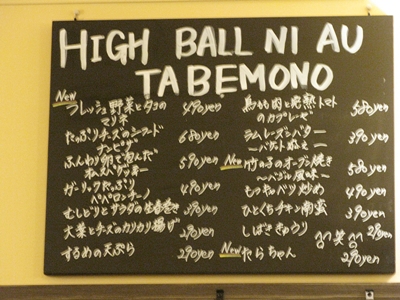 HIGH BALL NI AU
TABEMONO
New
フレッシュ野菜とタコの
マリネ 490yen
たっぷりチーズのシーフード
ナンピザ 680yen
ふんわり卵で包んだ
590yen
ガーリックたっぷり
ペペロンチーノ 490yen
むしどりとサラダの生春巻き 390yen
大葉とチーズのカリカリ揚げ 290yen
するめの天ぷら 290yen
鳥もも肉と完熟トマト
のカプレーゼ 580yen
ラムレーズンバター
〜バゲット添え〜 390yen
New 竹の子のオーブン焼き
〜バジル風味〜 580yen
もつキャベツ炒め 490yen
ひとくちチキン南蛮 390yen
しばききゅうり 笑 290yen
New たらちゃん 290yen